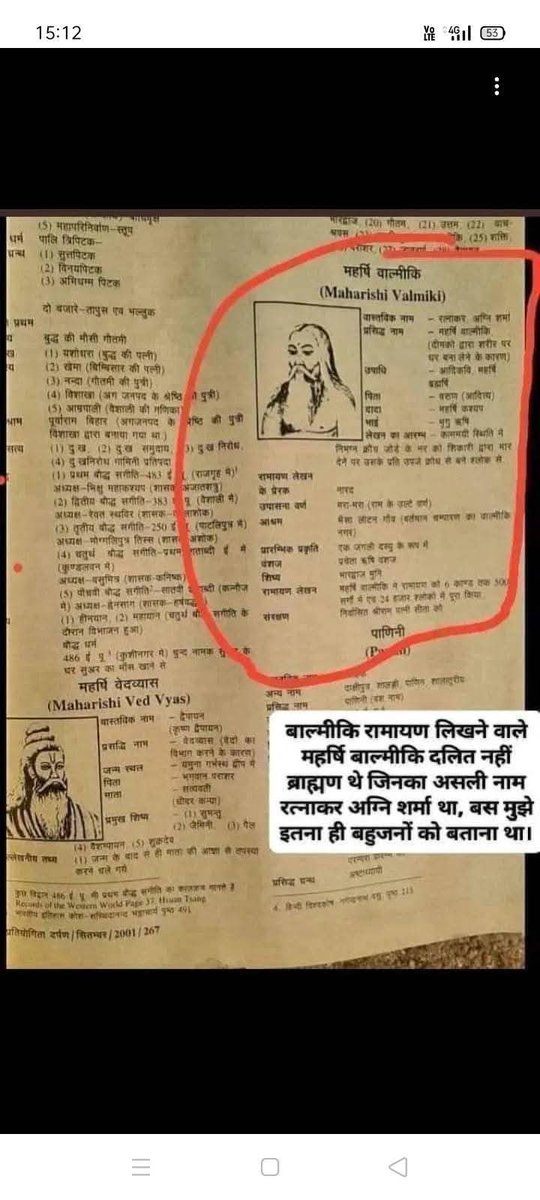 15:12
Vo LTE 4G 53
(5) महापरिनिर्वाण–स्तूप
धर्म पालि त्रिपिटक–
ग्रन्थ (1) सुत्तपिटक
(2) विनयपिटक
(3) अभिधम्म पिटक
दो बंजारे–तापुस एवं भल्लुक
प्रथम
बुद्ध की मौसी गौतमी
(1) यशोधरा (बुद्ध की पत्नी)
(2) खेमा (बिम्बिसार की पत्नी)
(3) नन्दा (गौतमी की पुत्री)
(4) विशाखा (अंग जनपद के श्रेष्ठि की पुत्री)
(5) आम्रपाली (वैशाली की गणिका)
पूर्वाराम विहार (अंगजनपद के श्रेष्ठि की पुत्री
विशाखा द्वारा बनाया गया था)
सत्य (1) दुःख, (2) दुःख समुदाय, (3) दुःख निरोध,
(4) दुःखनिरोध गामिनी प्रतिपदा
(1) प्रथम बौद्ध संगीति–483 ई. पू. (राजगृह में)
अध्यक्ष–भिक्षु महाकश्यप (शासक अजातशत्रु)
(2) द्वितीय बौद्ध संगीति–383 पू. (वैशाली में)
अध्यक्ष–रेवत स्थविर (शासक–
(3) तृतीय बौद्ध संगीति–250 ई. पू. (पाटलिपुत्र में)
अध्यक्ष–मोग्गलिपुत्र तिस्स (शासक अशोक)
(4) चतुर्थ बौद्ध संगीति–प्रथम शताब्दी ई. में
(कुण्डलवन में)
अध्यक्ष–वसुमित्र (शासक–कनिष्क)
(5) पाँचवीं बौद्ध संगीति–सातवीं शताब्दी (कन्नौज
में) अध्यक्ष–ह्वेनसांग (शासक–हर्षवर्द्धन)
(1) हीनयान, (2) महायान (चतुर्थ बौद्ध संगीति के
दौरान विभाजन हुआ)
बौद्ध धर्म
486 ई. पू.¹ (कुशीनगर में) चुन्द नामक के
घर सुअर का माँस खाने से
महर्षि वेदव्यास
(Maharishi Ved Vyas)
वास्तविक नाम – द्वैपायन
(कृष्ण द्वैपायन)
प्रसिद्धि नाम – वेदव्यास (वेदों का
विभाग करने के कारण)
जन्म स्थल – यमुना गर्भस्थ द्वीप में
पिता – भगवान पराशर
माता – सत्यवती
(धीवर कन्या)
प्रमुख शिष्य – (1) सुमन्तु
(2) जैमिनी, (3) पैल
(4) वैशम्पायन, (5) शुकदेव
उल्लेखनीय तथ्य (1) जन्म के बाद से ही माता की आज्ञा से तपस्या
करने चले गये
कुछ विद्वान 486 ई. पू. भी प्रथम बौद्ध संगीति का कालक्रम मानते हैं
Records of the Western World Page 37, Hiuan Tsang
भारतीय इतिहास कोश–सच्चिदानन्द भट्टाचार्य पृष्ठ 491
प्रतियोगिता दर्पण/सितम्बर/2001/267
भारद्वाज, (20) गौतम, (21) उत्तम, (22)
(25) शक्ति,
महर्षि वाल्मीकि
(Maharishi Valmiki)
वास्तविक नाम – रत्नाकर, अग्नि शर्मा
प्रसिद्ध नाम – महर्षि वाल्मीकि
(दीमकों द्वारा शरीर पर
घर बना लेने के कारण)
उपाधि – आदिकवि, महर्षि
ब्रह्मर्षि
पिता – वरुण (आदित्य)
दादा – महर्षि कश्यप
भाई – भृगु ऋषि
लेखन का आरम्भ – काममयी स्थिति में
निमग्न क्रौंच जोड़े के नर को शिकारी द्वारा मार
देने पर उसके प्रति उपजे क्रोध से बने श्लोक से
रामायण लेखन
के प्रेरक नारद
उपासना वर्ण मरा-मरा (राम के उल्टे वर्ण)
आश्रम भैंसा लोटन गाँव (वर्तमान चम्पारण का वाल्मीकि
नगर)
प्रारम्भिक प्रकृति एक जंगली दस्यु के रूप में
वंशज प्रचेता ऋषि वंशज
शिष्य भारद्वाज मुनि
रामायण लेखन महर्षि वाल्मीकि ने रामायण को 6 काण्ड तक 500
सर्गों में एवं 24 हजार श्लोकों में पूरा किया
संरक्षण निर्वासित श्रीराम पत्नी सीता को
पाणिनी
अन्य नाम दाक्षीपुत्र, शालङ्की, पाणिन शालातुरीय
प्रसिद्ध नाम पाणिनी (वंश नाम)
बाल्मीकि रामायण लिखने वाले
महर्षि बाल्मीकि दलित नहीं
ब्राह्मण थे जिनका असली नाम
रत्नाकर अग्नि शर्मा था, बस मुझे
इतना ही बहुजनों को बताना था।
प्रसिद्ध ग्रन्थ अष्टाध्यायी
4. हिन्दी विश्वकोष, नगेन्द्रनाथ वसु, पृष्ठ 213